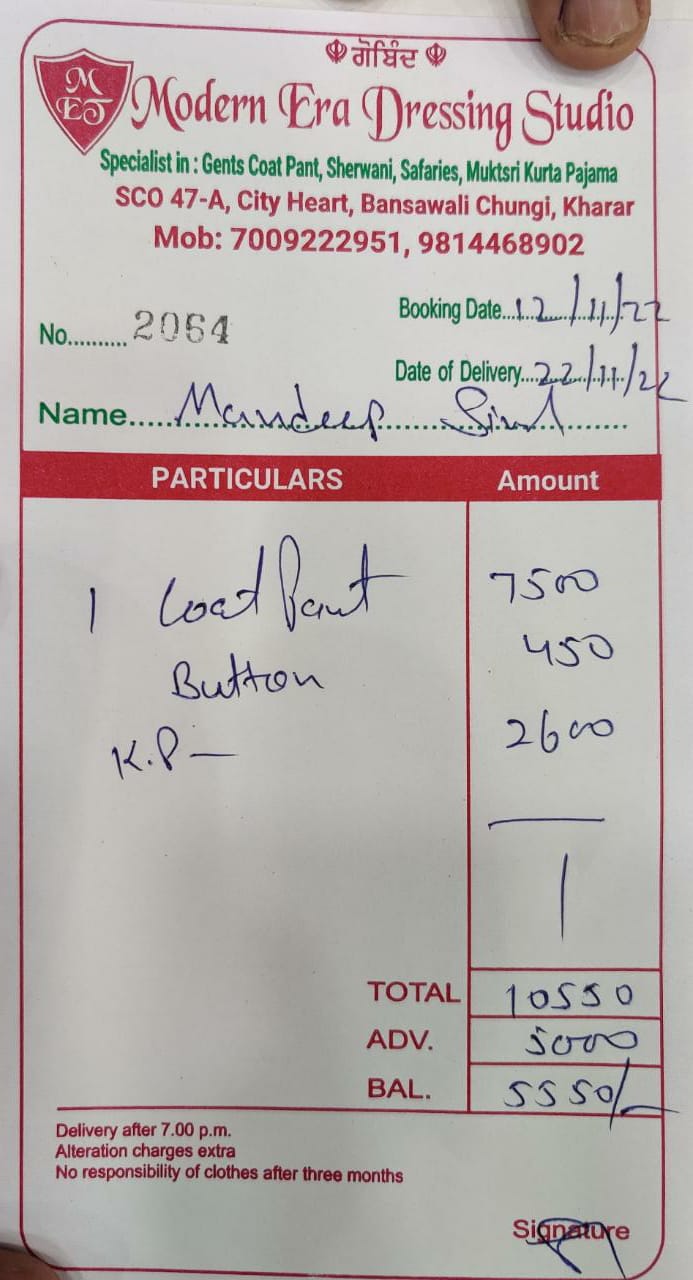 ਗੋਬਿੰਦ
MET
Modern Era Dressing Studio
Specialist in : Gents Coat Pant, Sherwani, Safaries, Muktsri Kurta Pajama
SCO 47-A, City Heart, Bansawali Chungi, Kharar
Mob: 7009222951, 9814468902
Booking Date....12/11/22
No.......... 2064
Date of Delivery....22/11/22
Name.....Mandeep
PARTICULARS Amount
1 Coat Pant 7500
Button 450
K.P — 2600
TOTAL 10550
ADV. 5000
BAL. 5550/-
Delivery after 7.00 p.m.
Alteration charges extra
No responsibility of clothes after three months
Signature